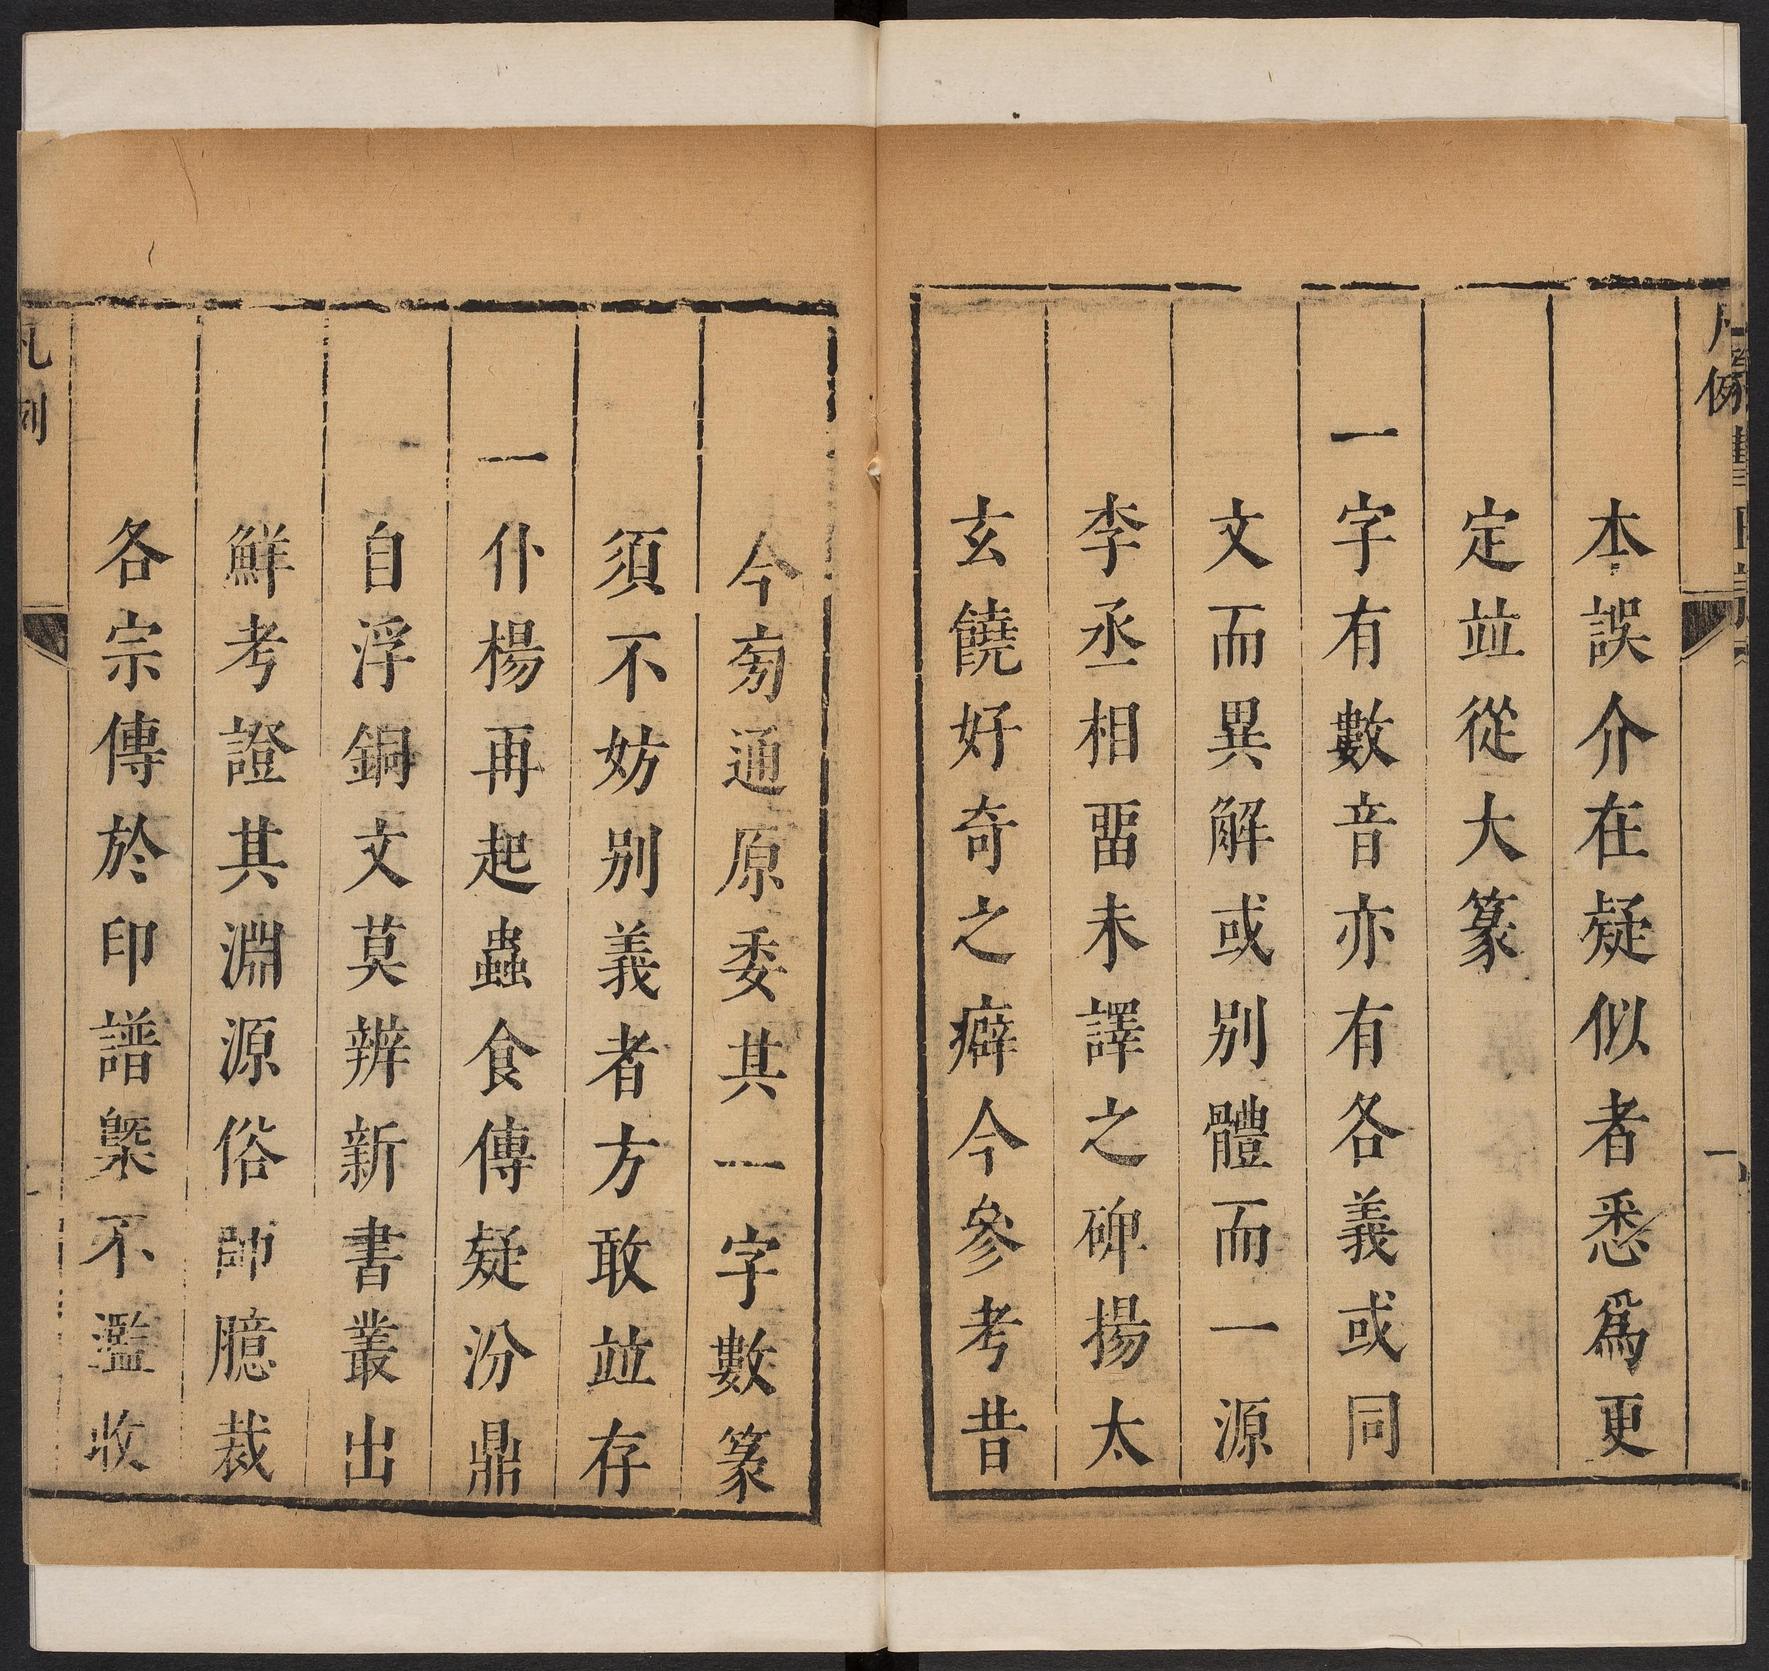 凡例
本誤介在疑似者悉爲更
定並從大篆
一字有數音亦有各義或同
文而異解或别體而一源
李丞相畱未譯之碑揚太
玄饒好奇之癖今參考昔
今㫄通原委其一字數篆
須不妨别義者方敢並存
一仆楊再起蟲食傳疑汾鼎
自浮銅文莫辨新書叢出
鮮考證其淵源俗師臆裁
各宗傳於印譜槩不濫收
凡例